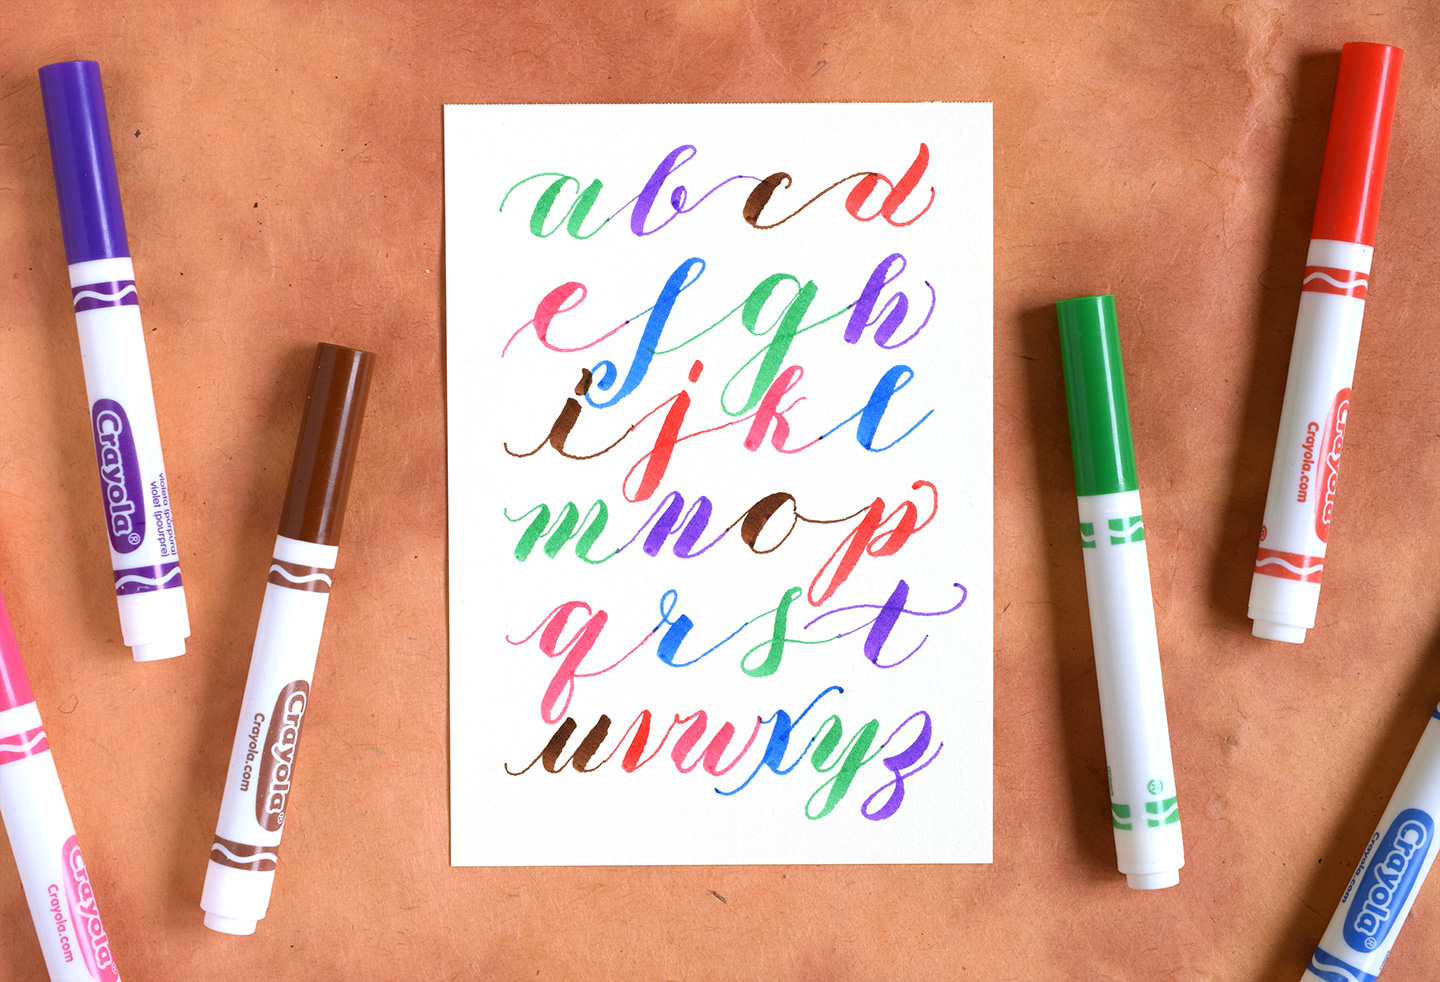 a b c d
e f g h
i j k l
m n o p
q r s t
u v w x y z
Crayola®
violeta (púrpura)
violet (pourpre)
Crayola®
Crayola.com
Crayola®
Crayola.com
Crayola®
Crayola.com
Crayola®
Crayola.com